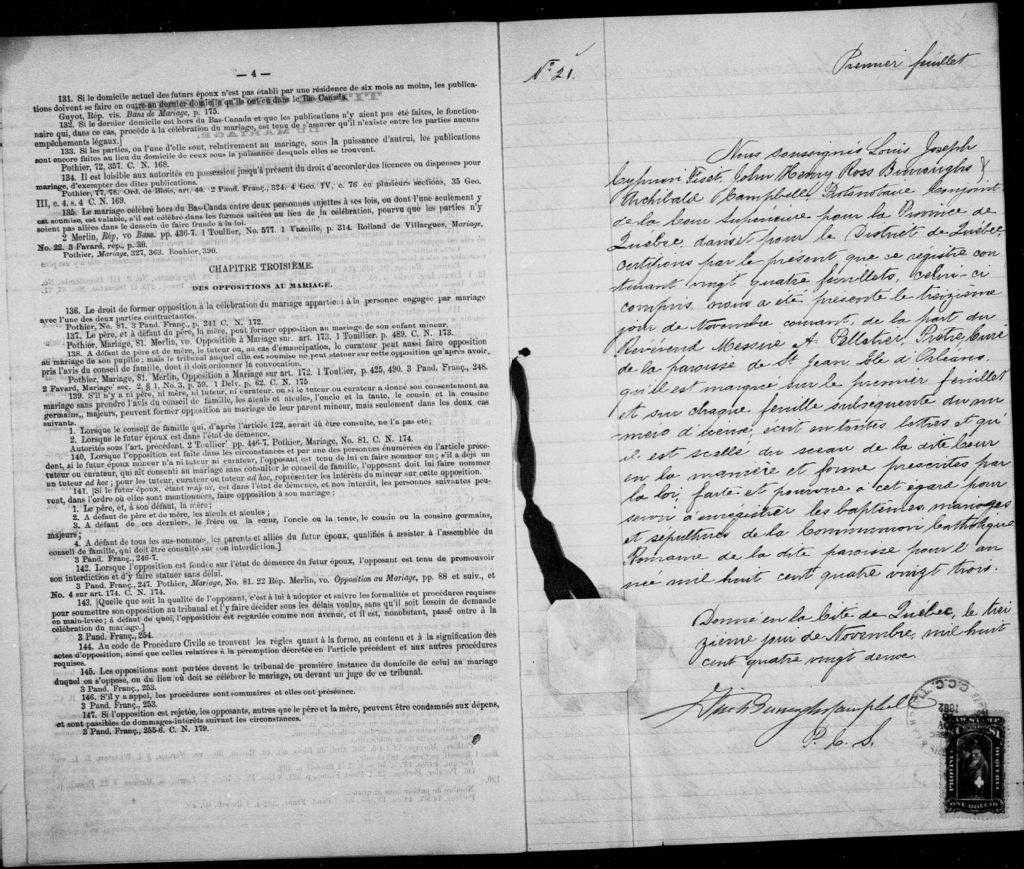 — 4 —
131. Si le domicile actuel des futurs époux n'est pas établi par une résidence de six mois au moins, les publica-
tions doivent se faire en outre au dernier domicile qu'ils ont eu dans le Bas-Canada.
Guyot, Rép. vis. Bans de Mariage, p. 175.
132. Si le dernier domicile est hors du Bas-Canada et que les publications n'y aient pas été faites, le fonction-
naire qui, dans ce cas, procède à la célébration du mariage, est tenu de s'assurer qu'il n'existe entre les parties aucuns
empêchements légaux.]
133. Si les parties, ou l'une d'elle sont, relativement au mariage, sous la puissance d'autrui, les publications
sont encore faites au lieu du domicile de ceux sous la puissance desquels elles se trouvent.
Pothier, 72, 357. C. N. 168.
134. Il est loisible aux autorités en possession jusqu'à présent du droit d'accorder des licences ou dispenses pour
mariage, d'exempter des dites publications.
Pothier, 77, 78. Ord. de Blois, art. 40. 2 Pand. Franç., 324. 4 Geo. IV, c. 76 en plusieurs sections, 35 Geo.
III, c. 4. s. 4 C. N. 169.
135. Le mariage célébré hors du Bas-Canda entre deux personnes sujettes à ses lois, ou dont l'une seulement y
est soumise, est valable, s'il est célébré dans les formes usitées au lieu de la célébration, pourvu que les parties n'y
soient pas allées dans le dessein de faire fraude à la loi.
2 Merlin, Rép, vo Bans, pp. 436-7. 1 Toullier, No. 577. 1 Vazeille, p. 314. Rolland de Villargues, Mariage,
No. 22. 3 Favard, rép., p. 30.
Pothier, Mariage, 327, 363. Bouhier, 390.
CHAPITRE TROISIÈME.
DES OPPOSITIONS AU MARIAGE.
136. Le droit de former opposition à la célébration du mariage appartient à la personne engagée par mariage
avec l'une des deux parties contractantes.
Pothier, No. 81. 3 Pand. Franç., p. 241 C. N. 172.
137. Le père, et à défaut du père, la mère, peut former opposition au mariage de son enfant mineur.
Pothier, Mariage, 81. Merlin, vo. Opposition à Mariage sur. art. 173. 1 Toullier. p. 489. C. N. 173.
138. A défaut de père et de mère, le tuteur ou, au cas d'émancipation, le curateur peut aussi faire opposition
au mariage de son pupille; mais le tribunal auquel elle est soumise ne peut statuer sur cette opposition qu'après avoir
pris l'avis du conseil de famille, dont il doit ordonner la convocation.
Pothier, Mariage, 81. Merlin, Opposition à Mariage sur art. 172. 1 Toullier, p. 425, 490. 3 Pand. Franç., 248.
2 Favard, Mariage' sec. 2, § 1, No. 3, p. 59. 1 Delv. p. 62. C. N. 175
139. S'il n'y a ni père, ni mère, ni tuteur, ni curateur, ou si le tuteur ou curateur a donné son consentement au
mariage sans prendre l'avis du conseil de famille, les aïeuls et aïeules, l'oncle et la tante, le cousin et la cousine
germains, majeurs, peuvent former opposition au mariage de leur parent mineur, mais seulement dans les deux cas
suivants.
1. Lorsque le conseil de famille qui, d'après l'article 122, aurait dû être consulte, ne l'a pas été;
2. Lorsque le futur époux est dans l'état de démence.
Autorités sous l'art. précédent. 2 Toullier' pp. 446-7. Pothier, Mariage, No. 81. C. N. 174.
140. Lorsque l'opposition est faite dans les circonstances et par une des personnes énumérées en l'article précé-
dent, si le futur époux mineur n'a ni tuteur ni curateur, l'opposant est tenu de lui en faire nommer un; s'il a déjà un
tuteur ou curateur, qui ait consenti au mariage sans consulter le conseil de famille, l'opposant doit lui faire nommer
un tuteur ad hoc; pour les tuteur, curateur ou tuteur ad hoc, représenter les intérêts du mineur sur cette opposition.
141. [Si le futur époux, étant majeur, est dans l'état de démence, et non interdit, les personnes suivantes peu-
vent, dans l'ordre où elles sont mentionnées, faire opposition à son mariage:
1. Le père, et, à son défaut, la mère;
2. A défaut de père et de mère, les aïeuls et aïeules;
3. A défaut de ces derniers, le frère ou la sœur, l'oncle ou la tente, le cousin ou la cousine germains,
majeurs;
4. A défaut de tous les sus-nommés, les parents et alliés du futur époux, qualifiés à assister à l'assemblée du
conseil de famille, qui doit être consulté sur son interdiction.]
3 Pand. Franç., 246-7.
142. Lorsque l'opposition est fondée sur l'état de démence du futur époux, l'opposant est tenu de promouvoir
son interdiction et d'y faire statuer sans délai.
3 Pand. Franç., 247. Pothier, Mariage, No. 81. 22 Rép. Merlin, vo. Opposition au Mariage, pp. 88 et suiv., et
No. 4 sur art. 174. C. N. 174.
143. [Quelle que soit la qualité de l'opposant, c'est à lui à adopter et suivre les formalités et procédures requises
pour soumettre son opposition au tribunal et l'y faire décider sous les délais voulus, sans qu'il soit besoin de demande
en main-levée; à défaut de quoi, l'opposition est regardée comme non avenue, et il est, nonobstant, passé outre à la
célébration du mariage.]
3 Pand. Franç., 254.
144. Au code de Procédure Civile se trouvent les règles quant à la forme, au contenu et à la signification des
actes d'opposition, ainsi que celles relatives à la péremption décrétée en l'article précédent et aux autres procédures
requises.
145. Les oppositions sont portées devant le tribunal de première instance du domicile de celui au mariage
duquel on s'oppose, ou du lieu où doit se célébrer le mariage, ou devant un juge de ce tribunal.
3 Pand. Franç., 253.
146. S'il y a appel, les procédures sont sommaires et elles ont préséance.
3 Pand. Franç., 253.
147. Si l'opposition est rejetée, les opposants, autres que le père et la mère, peuvent être condamnés aux dépens,
et sont passibles de dommages-intérêts suivant les circonstances.
3 Pand. Franç., 255-6. C. N. 179.
No. 21.
Premier feuillet
Nous soussignés Louis Joseph
Cyprien Fiset, John Henry Ross Burroughs &
Archibald Campbell, Protonotaire Conjoint
de la Cour Supérieure pour la Province de
Québec, dans et pour le District de Québec,
certifions par le présent que ce régistre con
tenant vingt quatre feuillets, celui-ci
compris, nous a été présenté le treizième
jour de Novembre courant, de la part du
Révérend Messire A. Pelletier, Prêtre, Curé
de la paroisse de St Jean Ile d'Orléans.
qu'il est marqué sur le premier feuillet
et sur chaque feuille subséquente du nu
méro d'icelui, écrit en toutes lettres et qu'
il est scellé du sceau de la dite Cour
en la manière et forme prescrites par
la loi, faite et pourvue à cet égard pour
servir à enregistrer les baptêmes, mariages
et sépultures de la Communion Catholique
Romaine de la dite paroisse pour l'an
née mil huit cent quatre vingt trois.
Donné en la Cité de Québec, le trei
zième jour de Novembre, mil huit
cent quatre vingt deux.
Fiset Burroughs Campbell
P. C. S.
1882
LAW STAMP
$1
PROVINCE
OF QUEBEC
ONE DOLLAR